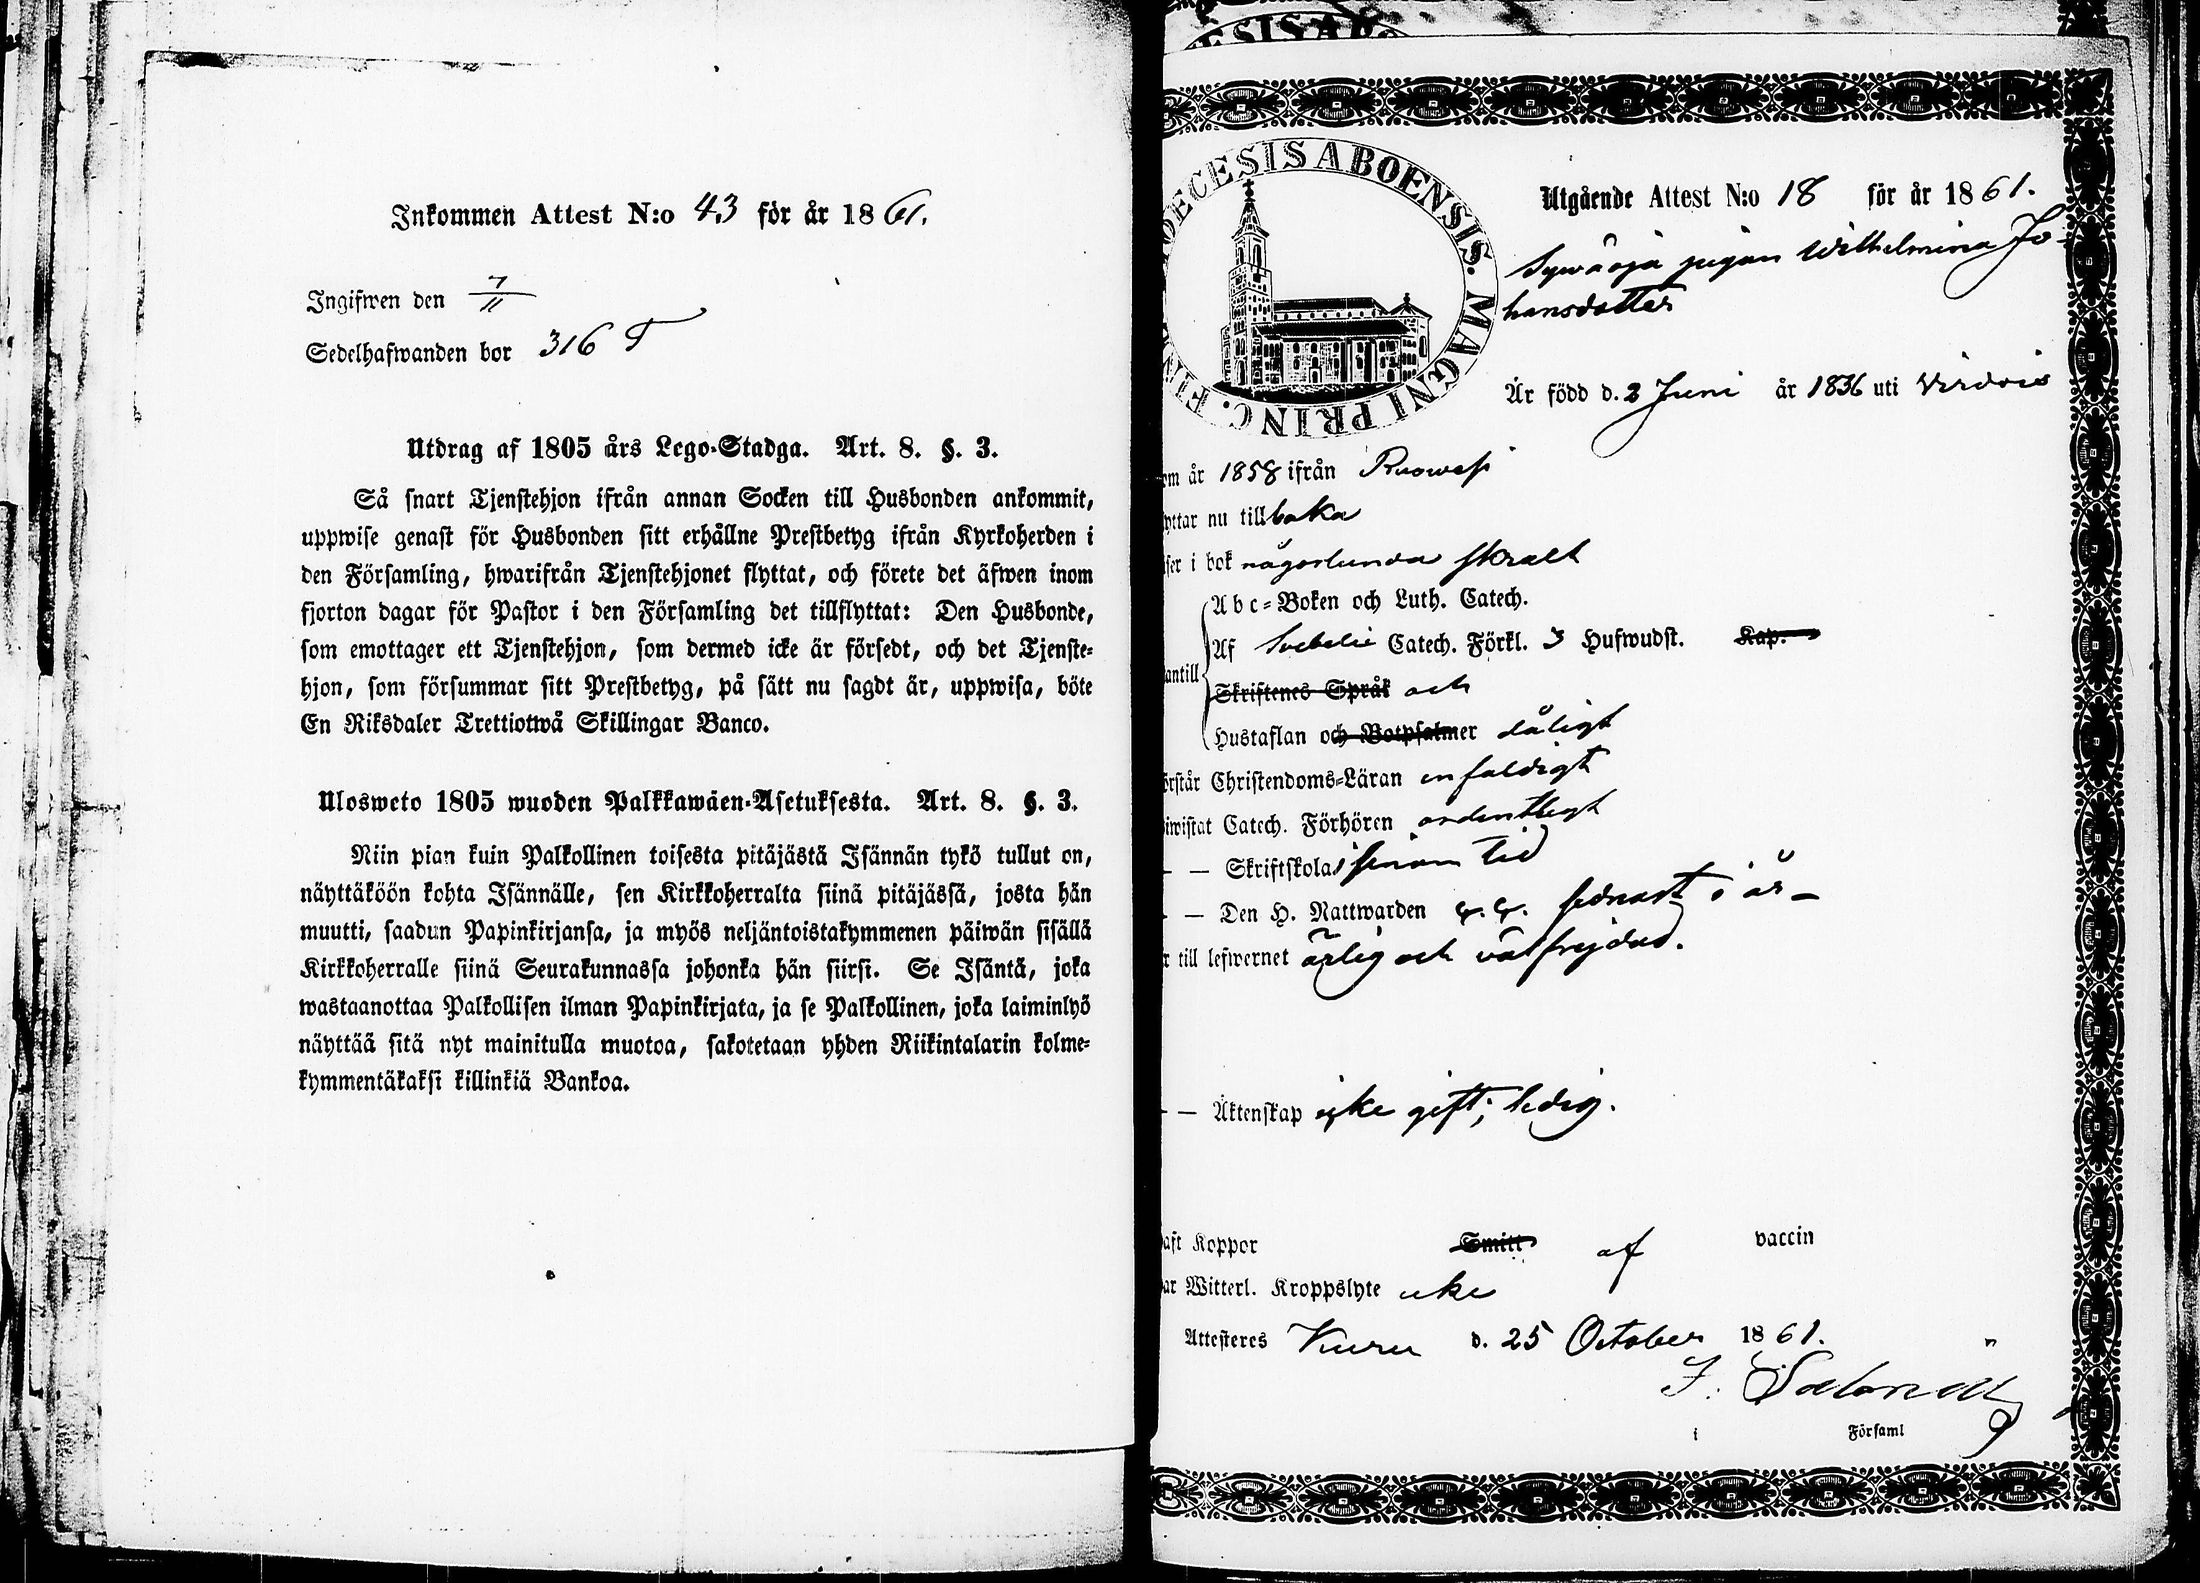 Inkommen Attest N:o 43 för år 1861.
Ingifwen den 7/11
Sedelhafwanden bor 316 T
Utdrag af 1805 års Lego-Stadga. Art. 8. §. 3.
Så snart Tjenstehjon ifrån annan Socken till Husbonden ankommit,
uppwise genast för Husbonden sitt erhållne Prestbetyg ifrån Kyrkoherden i
den Församling, hwarifrån Tjenstehjonet flyttat, och förete det äfwen inom
fjorton dagar för Pastor i den Församling det tillflyttat: Den Husbonde,
som emottager ett Tjenstehjon, som dermed icke är försedt, och det Tjenste-
hjon, som försummar sitt Prestbetyg, på sätt nu sagdt är, uppwisa, böte
En Riksdaler Trettiotwå Skillingar Banco.
Ulosweto 1805 wuoden Palkkawäen-Asetuksesta. Art. 8. §. 3.
Niin pian kuin Palkollinen toisesta pitäjästä Isännän tykö tullut on,
näyttäköön kohta Isännälle, sen Kirkkoherralta siinä pitäjässä, josta hän
muutti, saadun Papinkirjansa, ja myös neljäntoistakymmenen päiwän sisällä
Kirkkoherralle siinä Seurakunnassa johonka hän siirsi. Se Isäntä, joka
wastaanottaa Palkollisen ilman Papinkirjata, ja se Palkollinen, joka laiminlyö
näyttää sitä nyt mainitulla muotoa, sakotetaan yhden Riikintalarin kolme-
kymmentäkaksi killinkiä Bankoa.
ECESIS ABOENSIS. MAGNI PRINC. FIN
Utgående Attest N:o 18 för år 1861.
pigan Wilhelmina Jo-
hansdotter
Är född d. 2 Juni år 1836 uti Virdois
om år 1858 ifrån Ruowesi
yttar nu tillbaka
ser i bok någorlunda skralt
Abc-Boken och Luth. Catech.
Af Svebelii Catech. Förkl. 3 Hufwudst. Kap.
antill
Skriftenes Språk och
Hustaflan och Botpsalmer dåligt
örstår Christendoms-Läran enfaldigt
iwistat Catech. Förhören ordentligt
— — Skriftskola i sinom tid
— — Den H. Nattwarden senast i år
r till lefwernet ärlig och välfrejdad.
— — Äktenskap icke gift; ledig.
aft Koppor Smitt af vaccin
ar Witterl. Kroppslyte icke
Attesteres Kuru d. 25 October 1861.
F. Salonell
i Församl